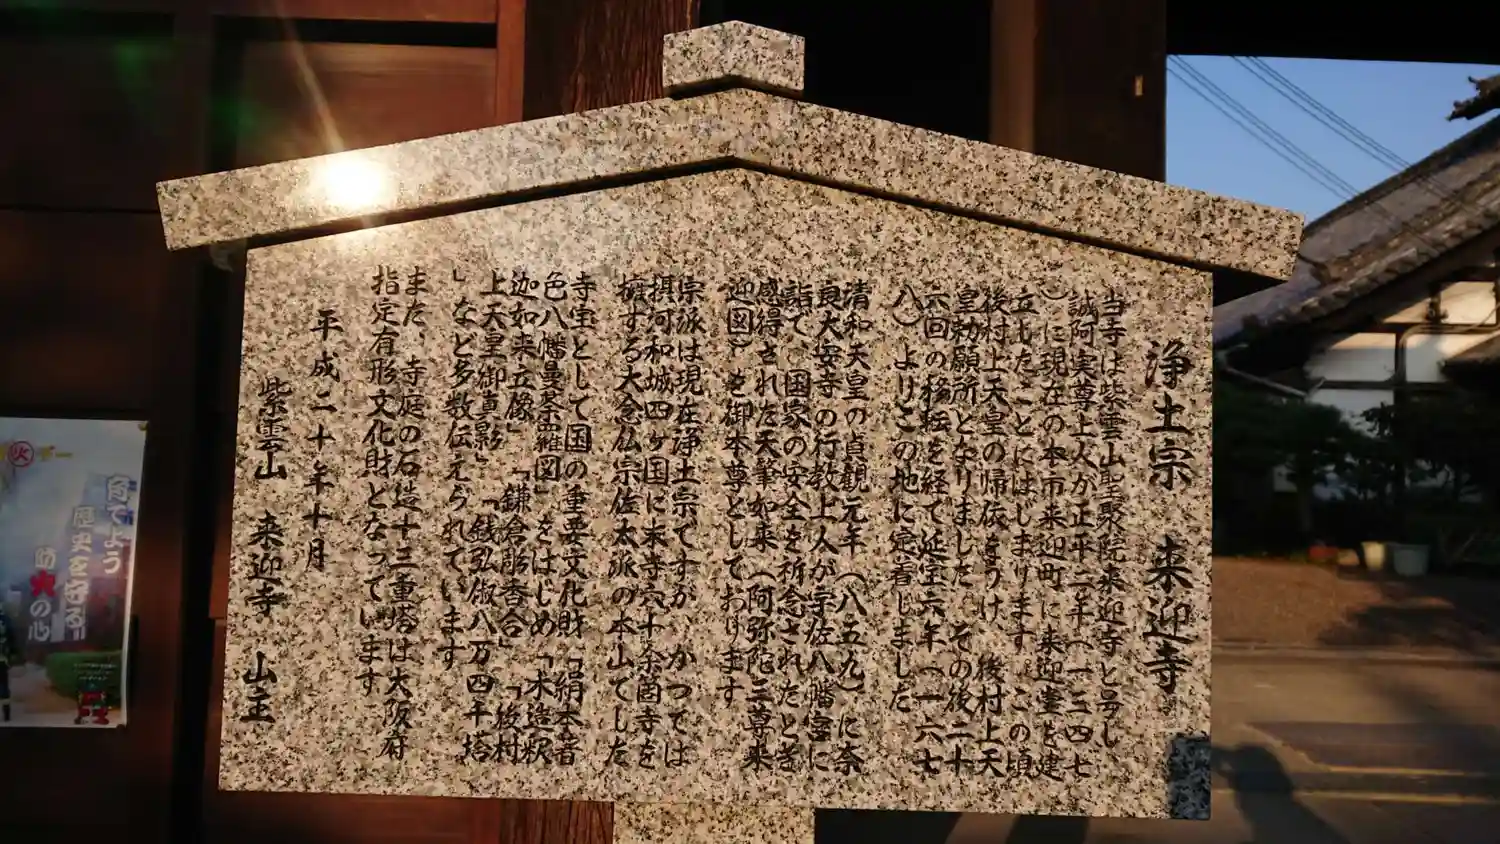 浄土宗 来迎寺
当寺は紫雲山聖聚院来迎寺と号し、
誠阿実尊上人が正平二年(一三四七
)に現在の本市来迎町に来迎堂を建
立したことにはじまります。この頃
後村上天皇の帰依をうけ、後村上天
皇勅願所となりました。その後二十
六回の移転を経て延宝六年(一六七
八)よりこの地に定着しました。
清和天皇の貞観元年(八五九)に奈
良大安寺の行教上人が宇佐八幡宮に
詣で、国家の安全を祈念されたとき
感得された天筆如来(阿弥陀三尊来
迎図)を御本尊としております。
宗派は現在浄土宗ですが、かつては
摂河和城四ヶ国に末寺六十余箇寺を
擁する大念仏宗佐太派の本山でした
寺宝として国の重要文化財「絹本着
色八幡曼荼羅図」をはじめ、「木造釈
迦如来立像」「鎌倉彫香合」「後村
上天皇御真影」「銭弘俶八万四千塔
」など多数伝えられています。
また、寺庭の石造十三重塔は大阪府
指定有形文化財となっています。
平成二十年十月
紫雲山 来迎寺 山主
育てよう
歴史を守る!!
防火の心